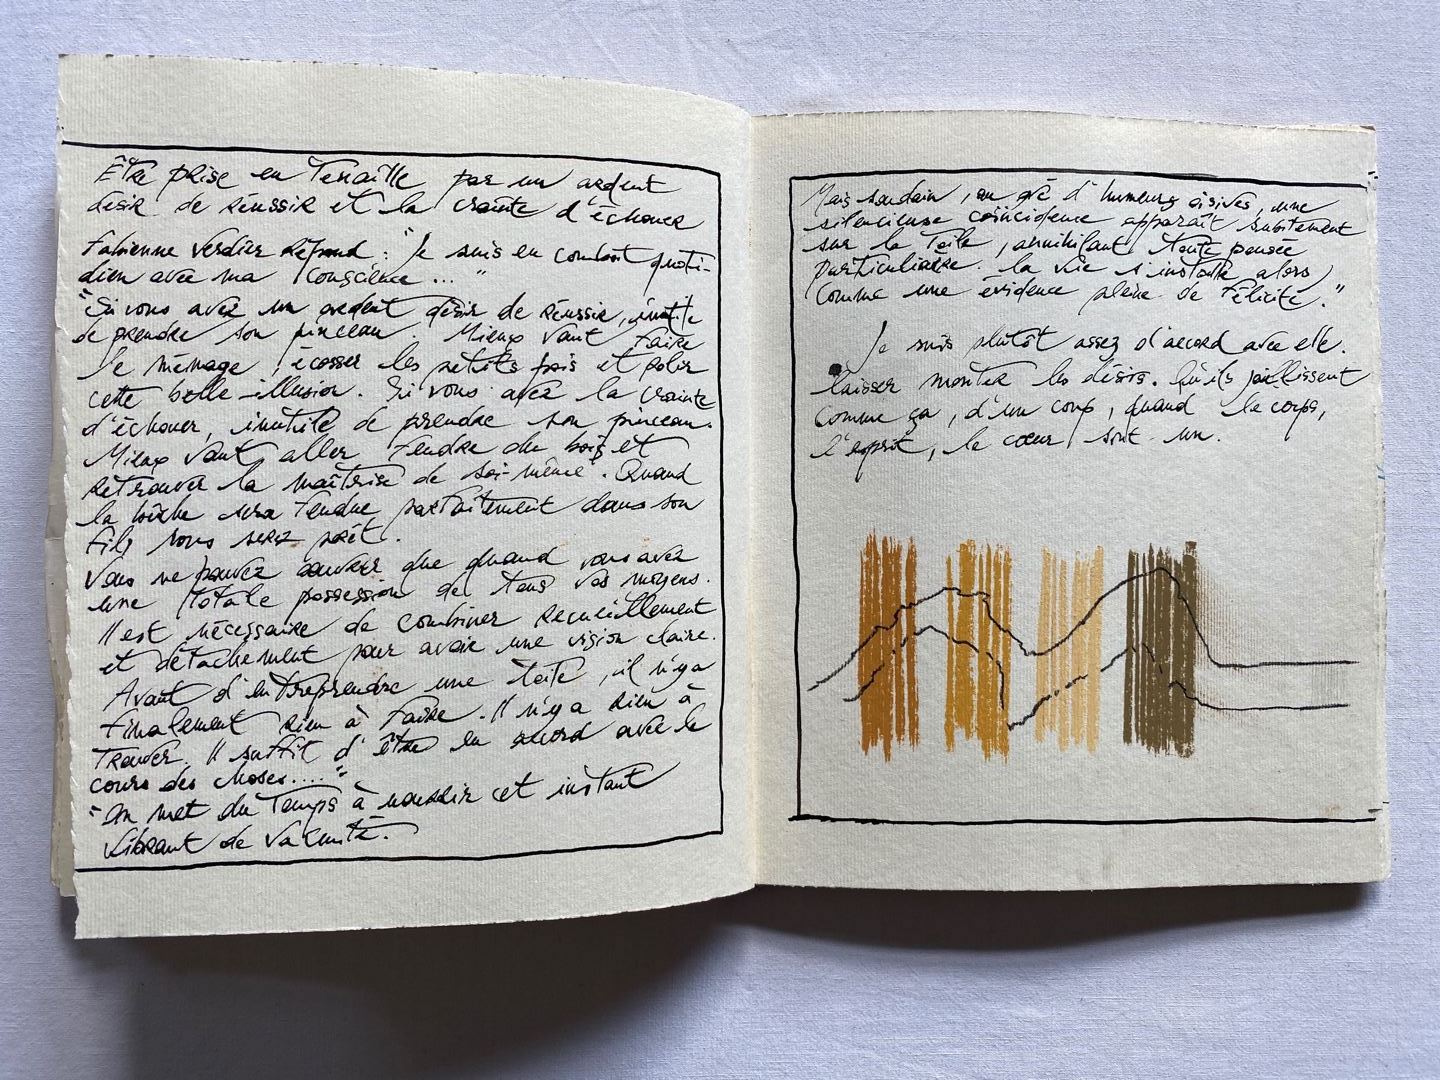 Être prise en tenaille par un ardent
désir de réussir et la crainte d'échouer
Fabienne Verdier répond : "Je suis en combat quoti-
dien avec ma conscience..."
"Si vous avez un ardent désir de réussir, inutile
de prendre son pinceau. Mieux vaut faire
le ménage, écosser les petits pois et polir
cette belle illusion. Si vous avez la crainte
d'échouer, inutile de prendre son pinceau.
Mieux vaut aller fendre du bois et
retrouver la maîtrise de soi-même. Quand
la bûche sera fendue parfaitement dans son
fil, vous serez prêt.
Vous ne pouvez œuvrer que quand vous avez
une totale possession de tous vos moyens.
Il est nécessaire de combiner recueillement
et détachement pour avoir une vision claire.
Avant d'entreprendre une toile, il n'y a
finalement rien à faire. Il n'y a rien à
trouver. Il suffit d'être en accord avec le
cours des choses...."
"On met du temps à nourrir cet instant
vibrant de vacuité.
Mais soudain, au gré d'humeurs oisives, une
silencieuse coïncidence apparaît subitement
sur la toile, annihilant toute pensée
particulière. La vie s'installe alors
comme une évidence pleine de félicité."
Je suis plutôt assez d'accord avec elle.
Laisser monter les désirs. Qu'ils jaillissent
comme ça, d'un coup, quand le corps,
l'esprit, le cœur sont un.